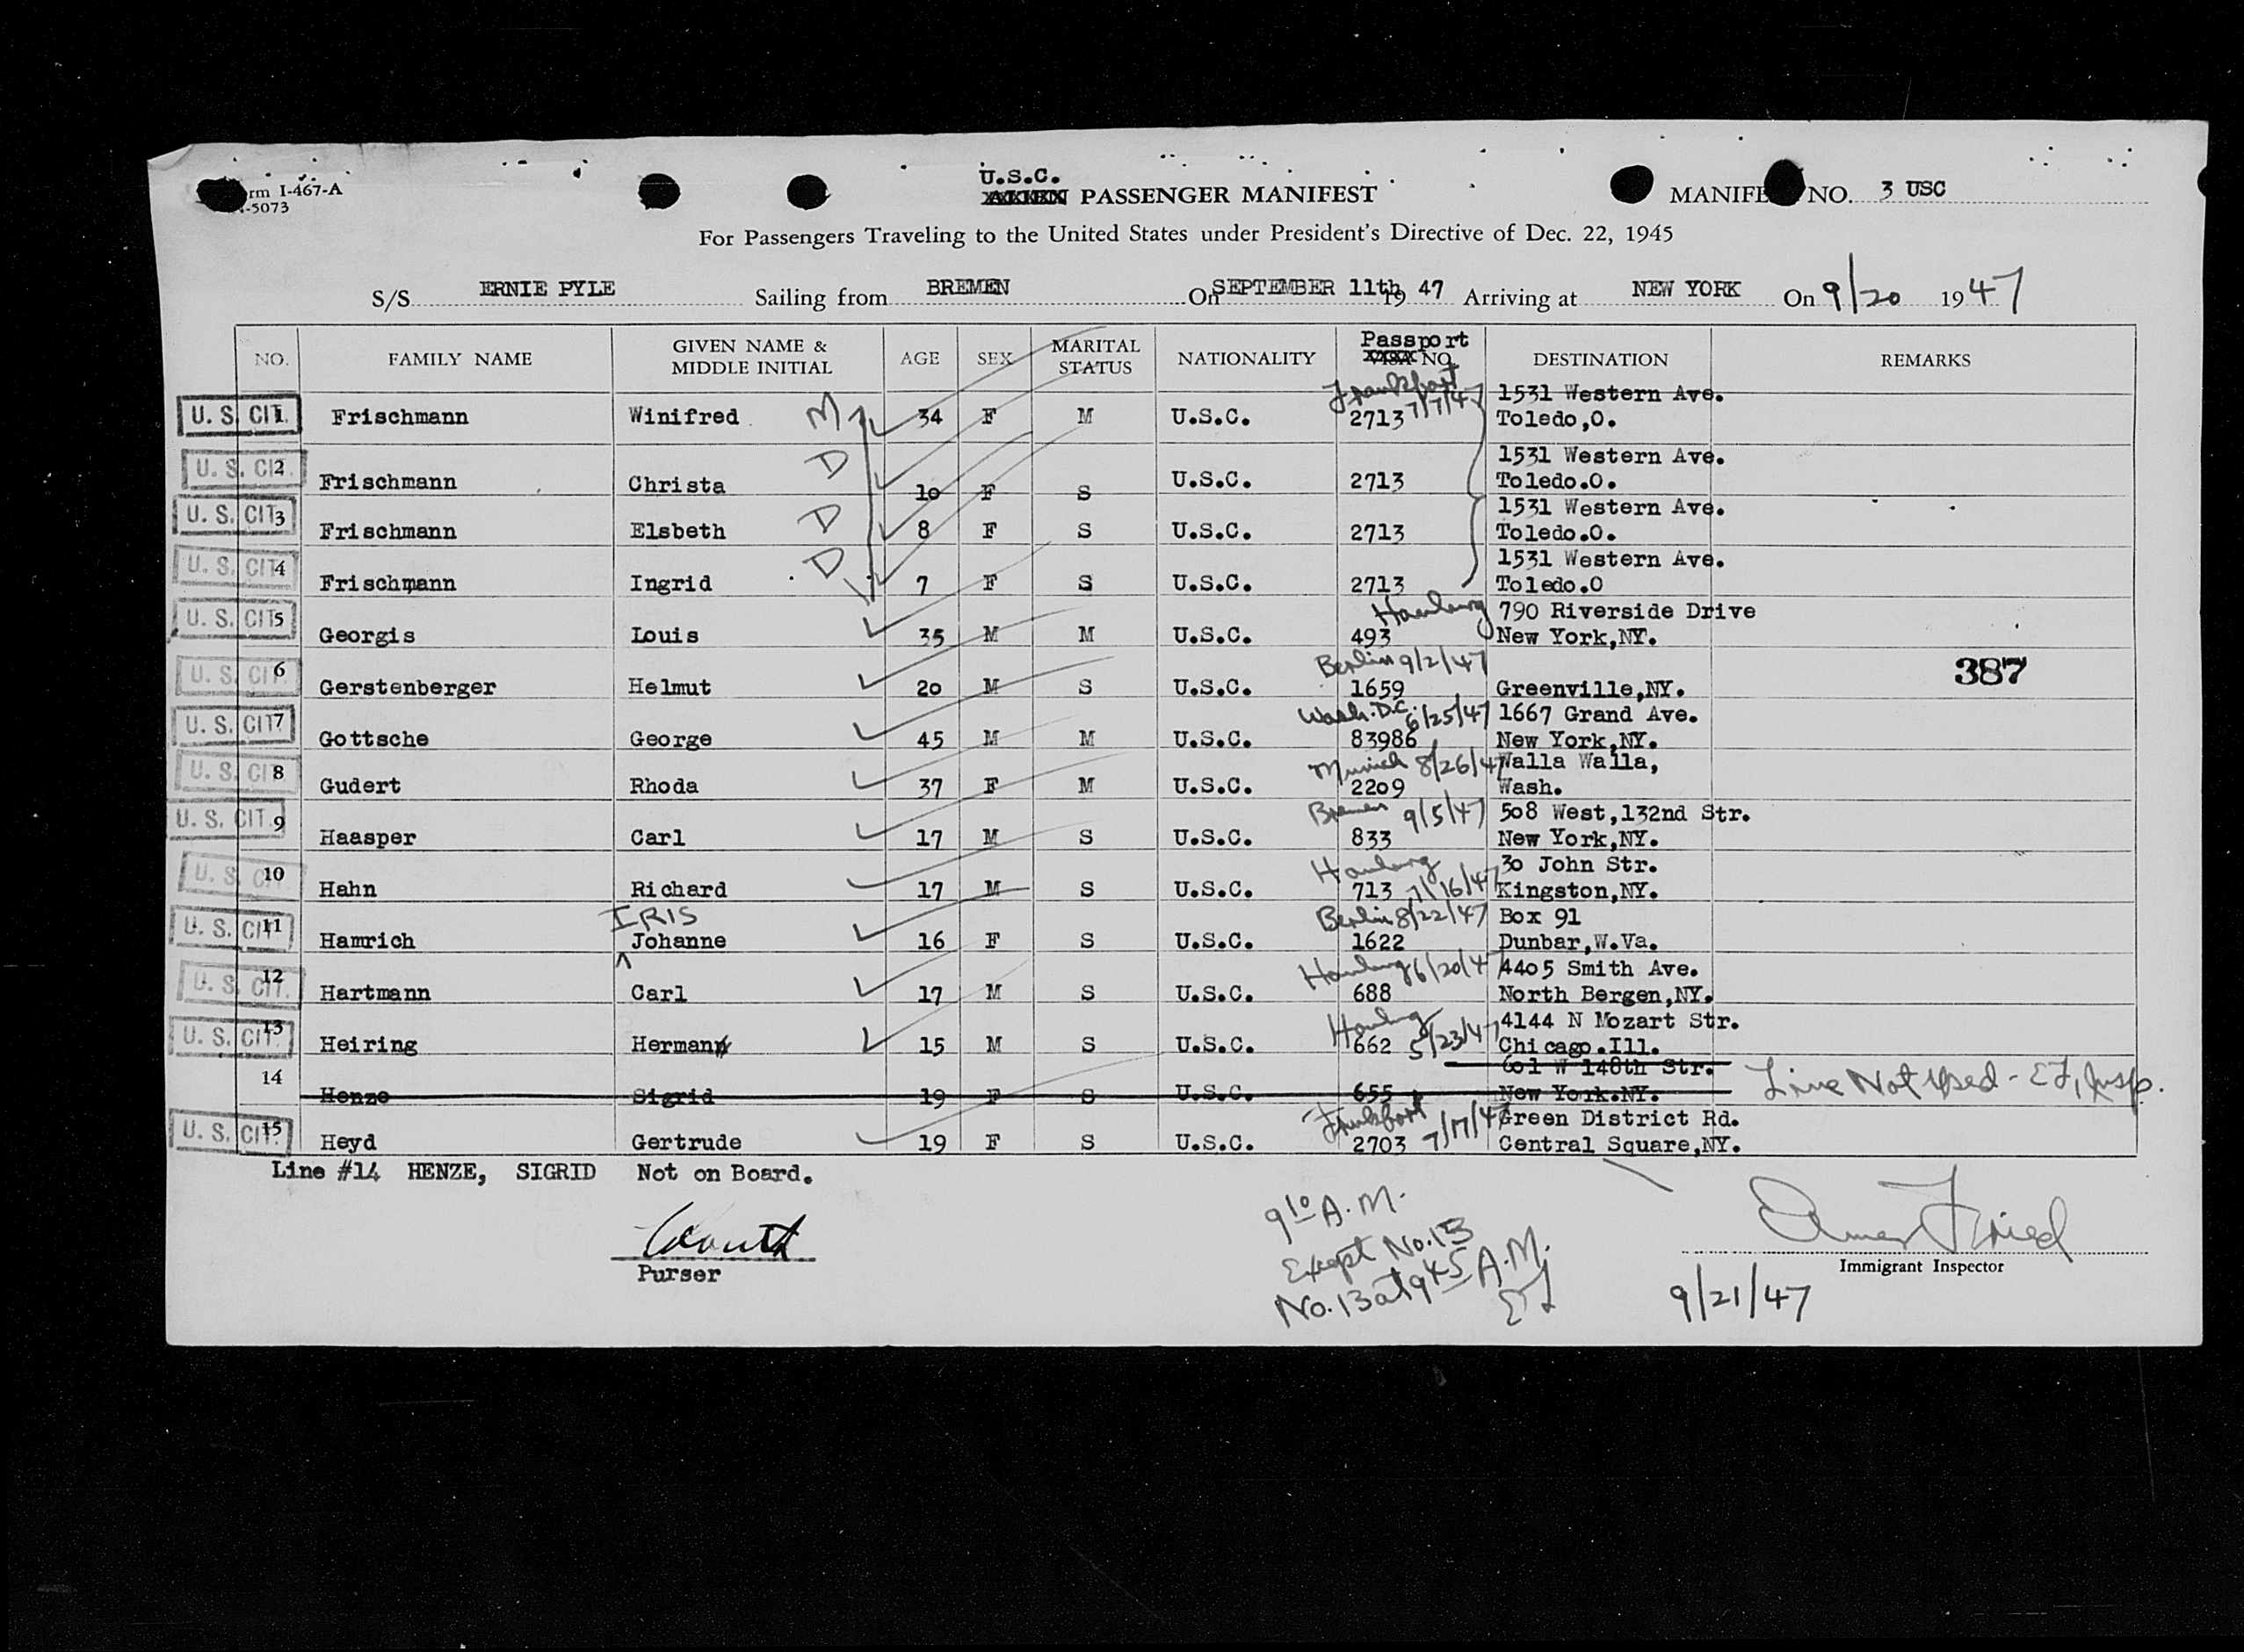 rm I-467-A
-5073
U.S.C.
ALIEN PASSENGER MANIFEST
MANIFE NO. 3 USC
For Passengers Traveling to the United States under President's Directive of Dec. 22, 1945
S/S ERNIE PYLE Sailing from BREMEN On SEPTEMBER 11th 19 47 Arriving at NEW YORK On 9/20 1947
NO. FAMILY NAME GIVEN NAME & MIDDLE INITIAL AGE SEX MARITAL STATUS NATIONALITY Passport VISA NO. DESTINATION REMARKS
Frankfort 7/7/47 1531 Western Ave.
U. S. CIT. 1 Frischmann Winifred M 34 F M U.S.C. 2713 Toledo,O.
1531 Western Ave.
U. S. CIT. 2 Frischmann Christa D 10 F S U.S.C. 2713 Toledo.O.
1531 Western Ave.
U. S. CIT. 3 Frischmann Elsbeth D 8 F S U.S.C. 2713 Toledo.O.
1531 Western Ave.
U. S. CIT. 4 Frischmann Ingrid D 7 F S U.S.C. 2713 Toledo.O
Hamburg 790 Riverside Drive
U. S. CIT. 5 Georgis Louis 35 M M U.S.C. 493 New York,NY.
Berlin 9/2/47
U. S. CIT. 6 Gerstenberger Helmut 20 M S U.S.C. 1659 Greenville,NY. 387
Wash. D.C. 6/25/47 1667 Grand Ave.
U. S. CIT. 7 Gottsche George 45 M M U.S.C. 83986 New York,NY.
Munich 8/26/47 Walla Walla,
U. S. CIT. 8 Gudert Rhoda 37 F M U.S.C. 2209 Wash.
Bremen 9/5/47 508 West,132nd Str.
U. S. CIT. 9 Haasper Carl 17 M S U.S.C. 833 New York,NY.
Hamburg 7/16/47 30 John Str.
U. S. CIT. 10 Hahn Richard 17 M S U.S.C. 713 Kingston,NY.
IRIS Berlin 8/22/47 Box 91
U. S. CIT. 11 Hamrich Johanne 16 F S U.S.C. 1622 Dunbar,W.Va.
Hamburg 6/20/47 4405 Smith Ave.
U. S. CIT. 12 Hartmann Carl 17 M S U.S.C. 688 North Bergen,NY.
Hamburg 5/23/47 4144 N Mozart Str.
U. S. CIT. 13 Heiring Hermann 15 M S U.S.C. 662 Chicago.Ill.
601 W 148th Str.
14 Henze Sigrid 19 F S U.S.C. 655 New York.NY. Line Not Used - EF, Insp.
Frankfort 7/17/47 Green District Rd.
U. S. CIT. 15 Heyd Gertrude 19 F S U.S.C. 2703 Central Square,NY.
Line #14 HENZE, SIGRID Not on Board.
Purser
9 10 A.M.
Except No. 13
No. 13 at 9 45 A.M.
EF
Fried
Immigrant Inspector
9/21/47